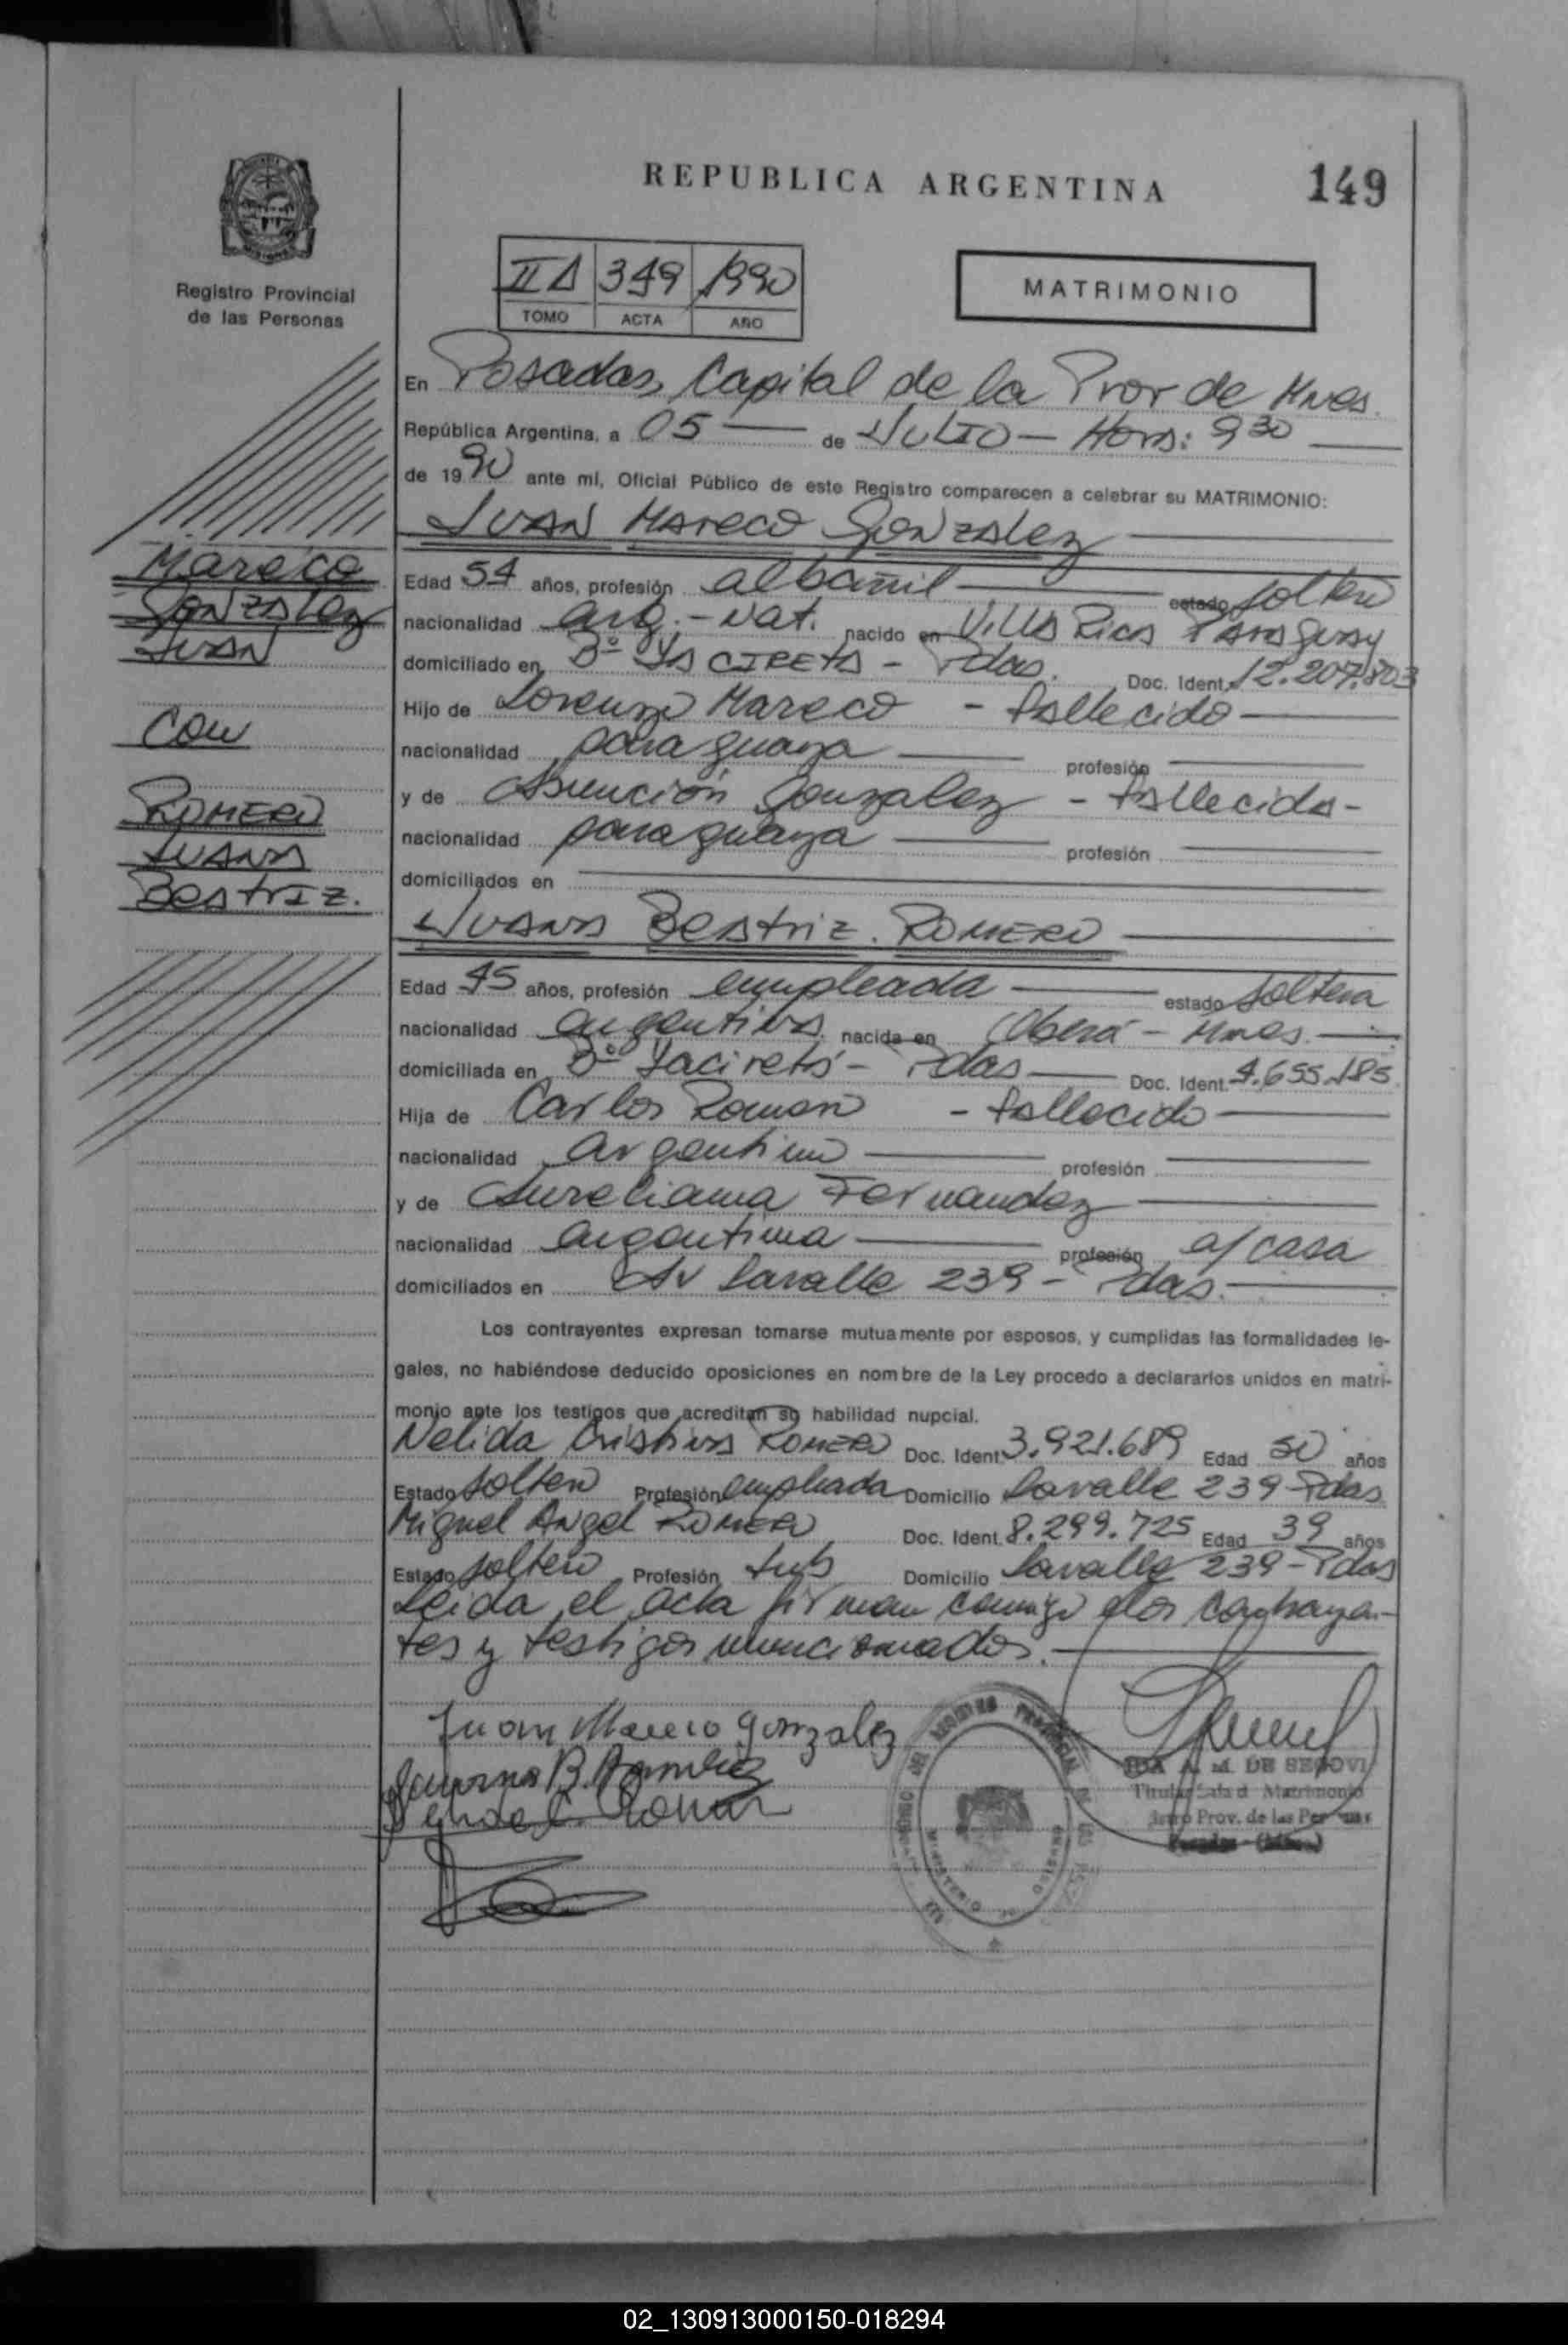 REPUBLICA ARGENTINA
149
Registro Provincial
de las Personas
II A 349 1990
TOMO ACTA AÑO
MATRIMONIO
En Posadas, Capital de la Prov de Mnes.
República Argentina, a 05 de JULIO - Hora: 9 30
de 1990 ante mí, Oficial Público de este Registro comparecen a celebrar su MATRIMONIO:
JUAN MARECO GONZALEZ
Mareco
GONZALEZ
JUAN
CON
ROMERO
JUANA
BEATRIZ.
Edad 54 años, profesión albañil estado soltero
nacionalidad arg. - Nat. nacido en Villa Rica Paraguay
domiciliado en Bº YACIRETA - Pdas. Doc. Ident. 12.207.803
Hijo de Lorenzo Mareco - fallecido
nacionalidad paraguaya profesión
y de Asunción Gonzalez - fallecida -
nacionalidad paraguaya profesión
domiciliados en
JUANA BEATRIZ. ROMERO
Edad 45 años, profesión empleada estado soltera
nacionalidad argentina nacida en Oberá - Mnes.
domiciliada en Bº Yacireta - Pdas Doc. Ident. 4.655.185
Hija de Carlos Romero - fallecido
nacionalidad argentino profesión
y de Aureliana Fernandez
nacionalidad argentina profesión a/casa
domiciliados en Av Lavalle 239 - Pdas.
Los contrayentes expresan tomarse mutuamente por esposos, y cumplidas las formalidades le-
gales, no habiéndose deducido oposiciones en nombre de la Ley procedo a declararlos unidos en matri-
monio ante los testigos que acreditan su habilidad nupcial.
Nelida Cristina ROMERO Doc. Ident. 3.921.689 Edad 50 años
Estado soltera Profesión empleada Domicilio Lavalle 239 - Pdas
Miguel Angel ROMERO Doc. Ident. 8.299.725 Edad 39 años
Estado soltero Profesión Domicilio Lavalle 239 - Pdas
Leida el acta firman conmigo los contrayen-
tes y testigos mencionados.
Juan Mareco gonzalez
DE SEGOVI
Titular Sala d Matrimonio
Prov. de las Per
02_130913000150-018294